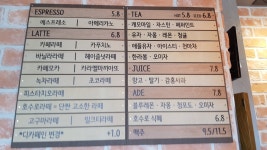 ESPRESSO 5.8
에스프레소 아메리카노
LATTE 6.8
카페라떼 카푸치노
바닐라라떼 헤이즐넛라떼
카페모카 카라멜마끼아또
녹차라떼 초코라떼
피스타치오라떼
호수로라떼 = 단짠 고소한 라떼
고구마라떼 밀크티라떼
*디카페인 변경* +1.0
TEA 5.8 ICED 6.8
캐모마일 · 자스민 · 페퍼민트
유자 · 자몽 · 레몬 · 청귤
애플유자 · 아이스티 · 한라봉 · 오미자
JUICE 7.8
망고 · 딸기 ·
ADE 7.8
블루레몬 · 자몽 · 청포도 · 오미자
호수로 식혜 6.8
맥주 9.5/11.5